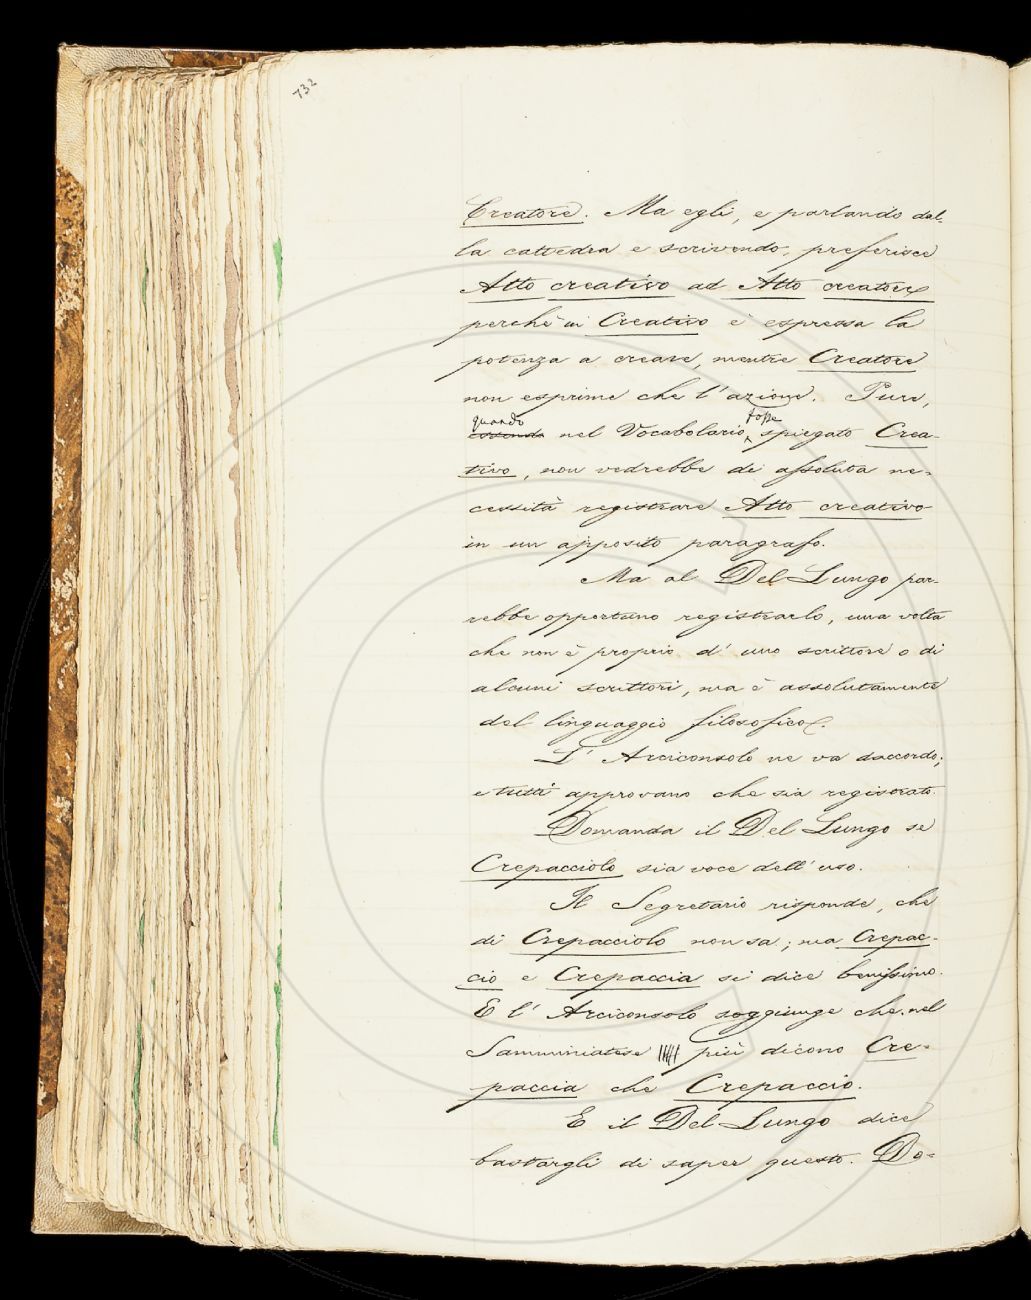 732
Creatore. Ma egli, e parlando dal-
la cattedra e scrivendo, preferisce
Atto creativo ad Atto creatore
perchè in Creativo è espressa la
potenza a creare, mentre Creatore
non esprime che l'azione. Pure,
quando fosse
essendo nel Vocabolario spiegato Crea-
tivo, non vedrebbe di assoluta ne-
cessità registrare Atto creativo
in un apposito paragrafo.
Ma al Del Lungo par-
rebbe opportuno registrarlo, una volta
che non è proprio d'uno scrittore o di
alcuni scrittori, ma è assolutamente
del linguaggio filosofico.
L'Arciconsolo ne va daccordo;
e tutti approvano che sia registrato.
Domanda il Del Lungo se
Crepacciolo sia voce dell'uso.
Il Segretario risponde, che
di Crepacciolo non sa; ma Crepac-
cio e Crepaccia si dice benissimo.
E l'Arciconsolo soggiunge che nel
Samminiatese più dicono Cre-
paccia che Crepaccio.
E il Del Lungo dice
bastargli di saper questo. Do-